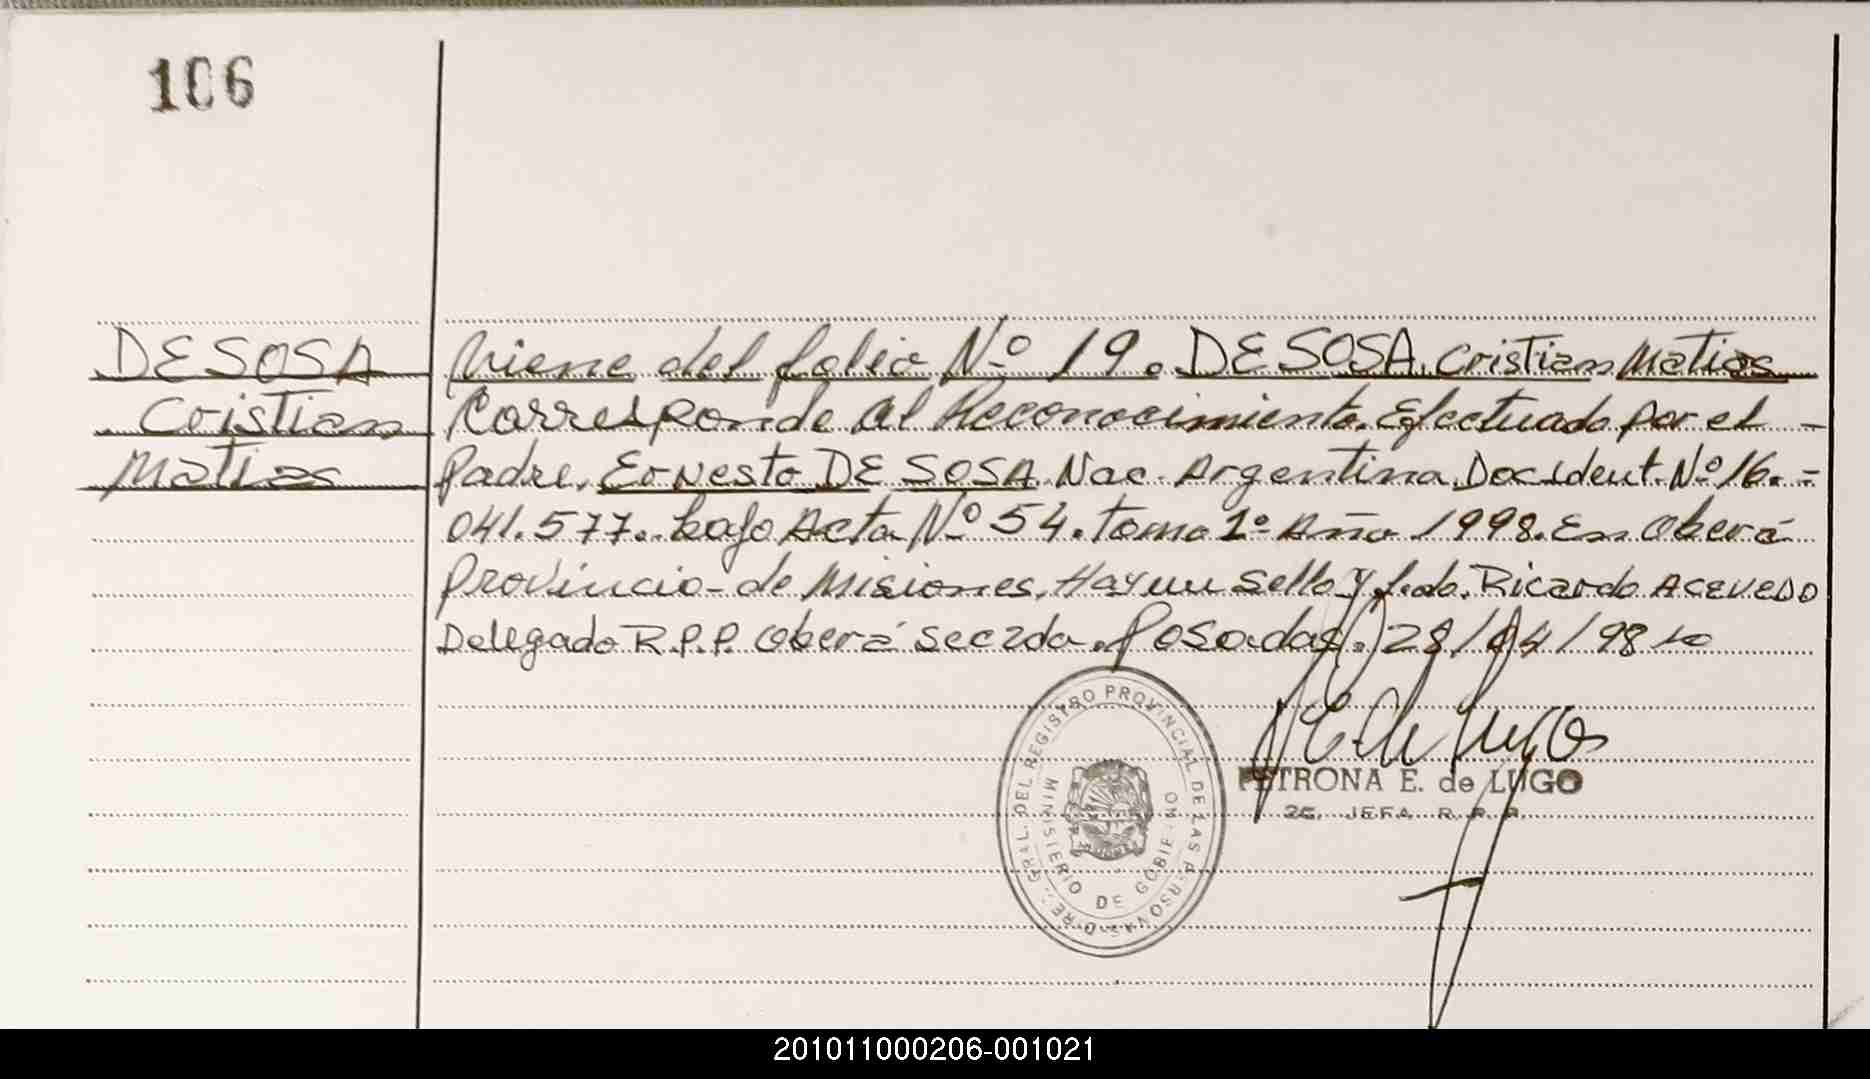 106
DE SOSA
Cristian
Matias
Viene del folio Nº 19. DE SOSA, Cristian Matias
Corresponde al Reconocimiento. Efectuado por el -
Padre, Ernesto DE SOSA. Nac. Argentina, Doc. Ident. Nº 16.=
041.577.. bajo Acta Nº 54. tomo 1º Año 1998. En Oberá
Provincia de Misiones. Hay un sello y f.do. Ricardo ACEVEDO
Delegado R.P.P. Oberá Sec 2da. Posadas. 28/04/98
PETRONA E. de LUGO
JEFA R.P.P.
GRAL. DEL REGISTRO PROVINCIAL DE LAS PERSONAS
MINISTERIO DE GOBIERNO
201011000206-001021